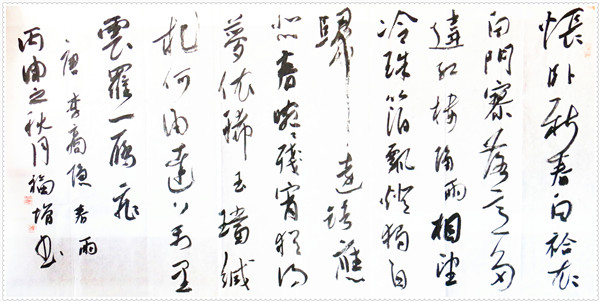 悵卧新春白袷衣
白門寥落意多
違紅樓隔雨相望
冷珠箔飄燈獨自
歸遠路應
悲春晼晚殘宵猶得
夢依稀玉璫緘
札何由達万里
雲羅一雁飛
唐李商隱春雨
丙申之秋月福增書